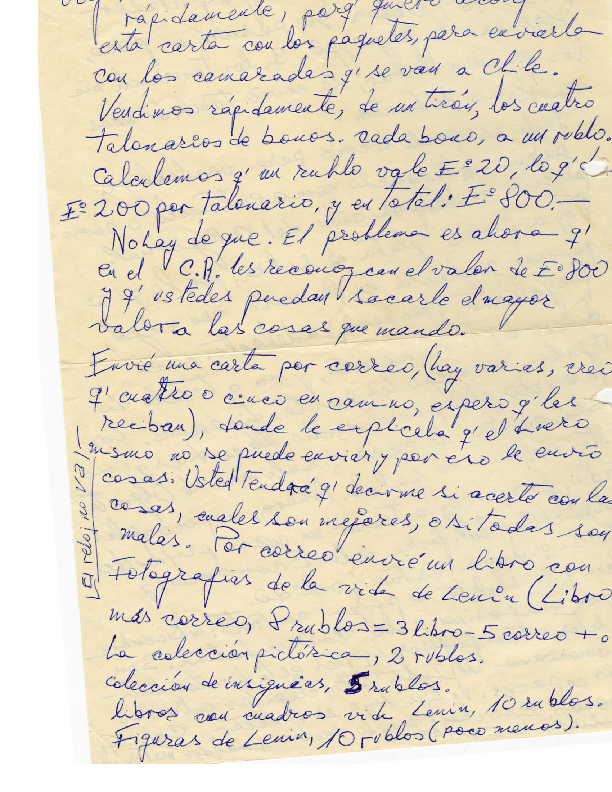 rápidamente, porq' quiero
esta carta con los paquetes, para enviarla
con los camaradas q' se van a Chile.
Vendimos rápidamente, de un tirón, los cuatro
talonarios de bonos. cada bono, a un rublo.
Calculemos q' un rublo vale Eº 20, lo q'
Eº 200 por talonario, y en total: Eº 800.—
No hay de que. El problema es ahora q'
en el C.R. les reconozcan el valor de Eº 800
y q' ustedes puedan sacarle el mayor
valor a las cosas que mando.
Envié una carta por correo, (hay varias, creo
q' cuatro o cinco en camino, espero q' las
reciban), donde le explicaba q' el dinero
mismo no se puede enviar y por eso le envío
cosas. Usted tendrá q' decirme si acerté con las
cosas, cuales son mejores, o si todas son
malas. Por correo envié un libro con
Fotografías de la vida de Lenin (Libro
más correo, 8 rublos = 3 libro - 5 correo +
La colección pictórica, 2 rublos.
colección de insignias, 5 rublos.
libros con cuadros vida Lenin, 10 rublos.
Figuras de Lenin, 10 rublos (poco menos).
El reloj no va